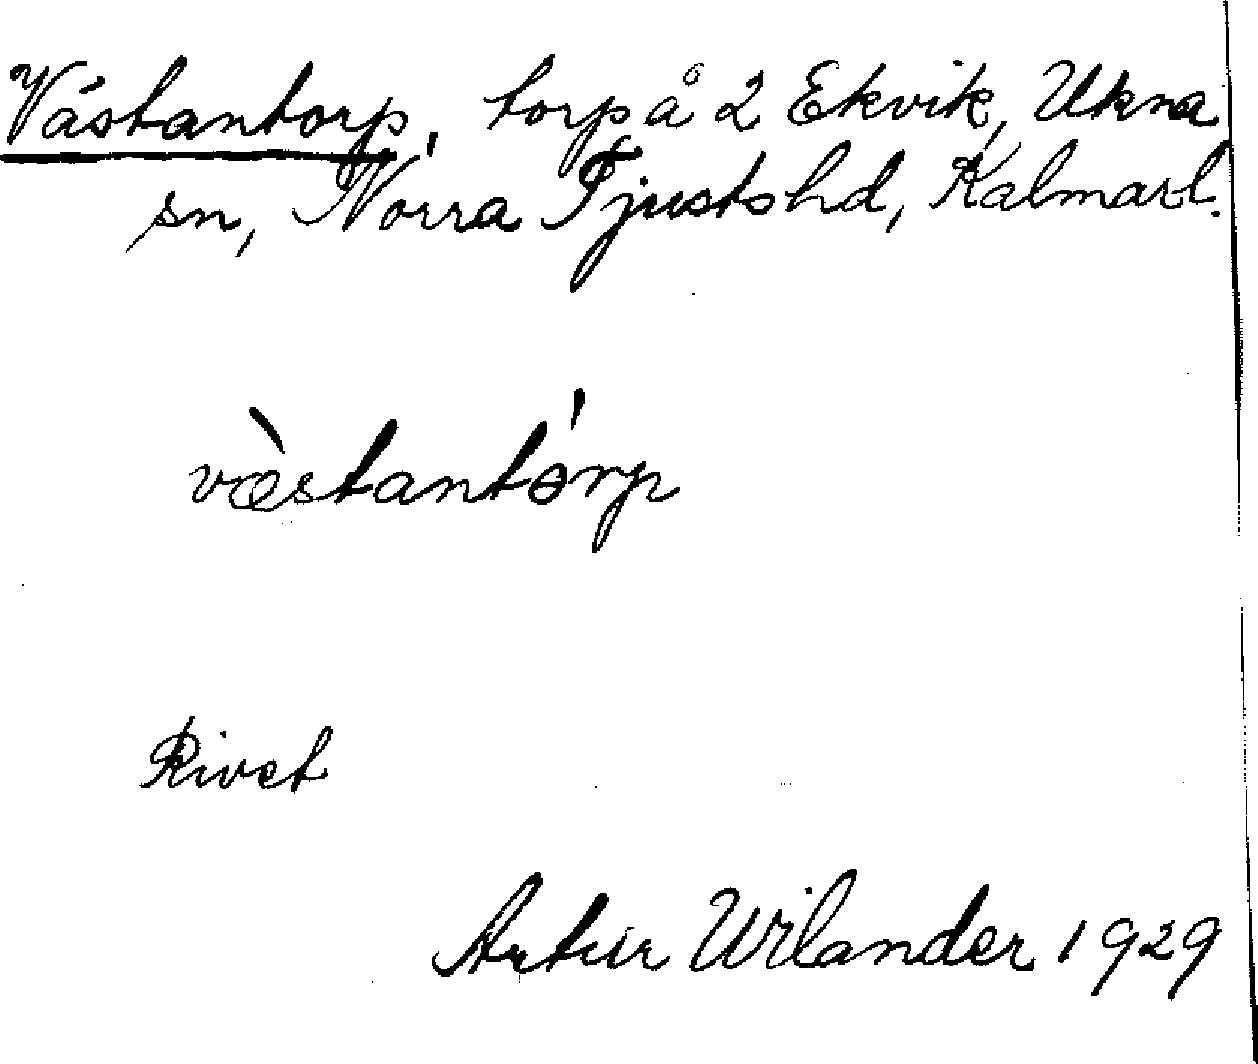 Västantorp, torp å 2 Ekvik, Ukna
sn, Norra Tjusts hd, Kalmar l.
væ̀stantórp
Rivet
Artur Wilander 1929